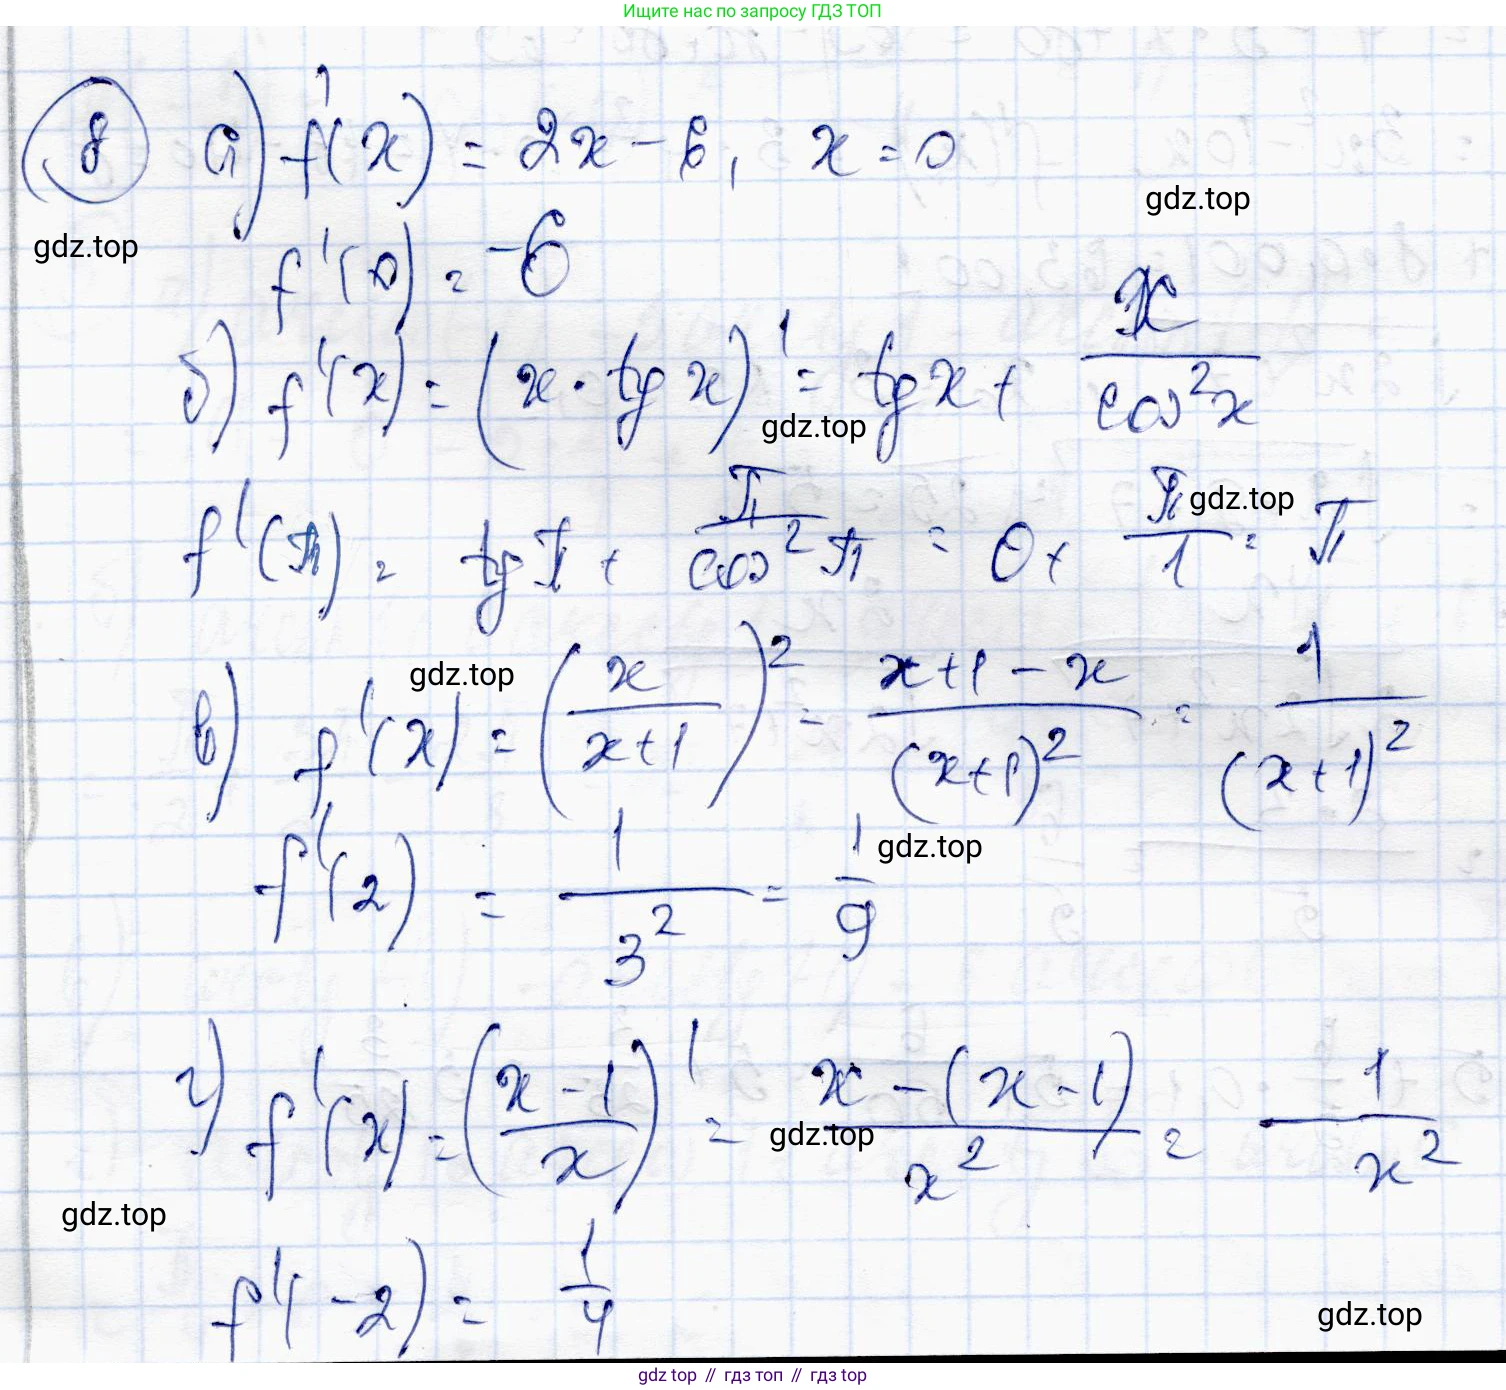 Ищите нас по запросу ГДЗ ТОП
8 а) f'(x) = 2x - 6, x = 0
gdz.top
gdz.top
f'(0) = -6
б) f'(x) = (x · tg x)' = tg x + x/cos²x
gdz.top
gdz.top
f'(π) = tg π + π/cos²π = 0 + π/1 = π
gdz.top
в) f'(x) = (x/(x+1))² = (x+1-x)/(x+1)² = 1/(x+1)²
gdz.top
f'(2) = 1/3² = 1/9
г) f'(x) = ((x-1)/x)' = (x-(x-1))/x² = 1/x²
gdz.top
gdz.top
f'(-2) = 1/4
gdz.top
gdz.top // гдз топ // gdz.top